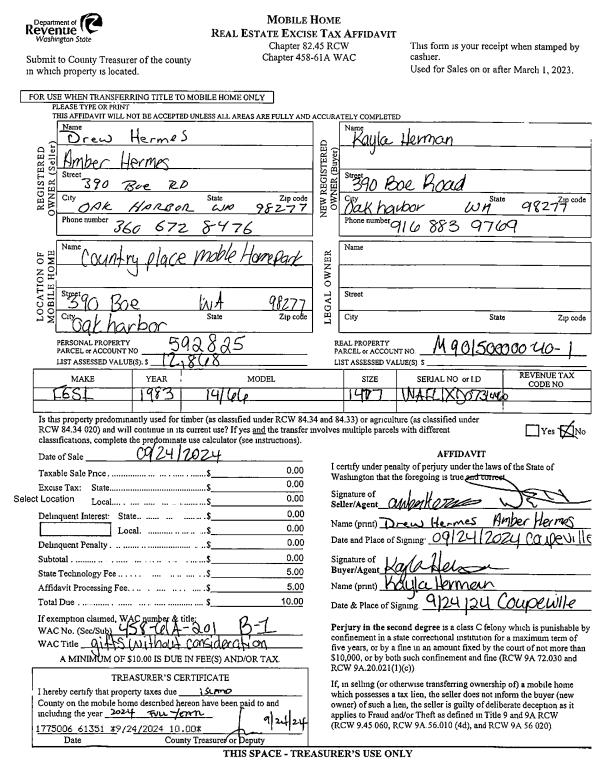 Department of
Revenue
Washington State
Submit to County Treasurer of the county
in which property is located.
MOBILE HOME
REAL ESTATE EXCISE TAX AFFIDAVIT
Chapter 82.45 RCW
Chapter 458-61A WAC
This form is your receipt when stamped by
cashier.
Used for Sales on or after March 1, 2023.
FOR USE WHEN TRANSFERRING TITLE TO MOBILE HOME ONLY
PLEASE TYPE OR PRINT
THIS AFFIDAVIT WILL NOT BE ACCEPTED UNLESS ALL AREAS ARE FULLY AND ACCURATELY COMPLETED
REGISTERED OWNER (Seller)
Name
Drew Hermes
Amber Hermes
Street
390 Boe RD
City State Zip code
OAK HARBOR WA 98277
Phone number
360 672 8476
NEW REGISTERED OWNER (Buyer)
Name
Kayla Herman
Street
390 Boe Road
City State Zip code
Oak harbor WA 98277
Phone number 916 883 9769
LOCATION OF MOBILE HOME
Name
Country place moble Home Park
Street
390 Boe WA 98277
City State Zip code
Oak harbor
LEGAL OWNER
Name
Street
City State Zip code
PERSONAL PROPERTY
PARCEL or ACCOUNT NO 592825
LIST ASSESSED VALUE(S). $ 12,868
REAL PROPERTY
PARCEL or ACCOUNT NO. M901500000 40-1
LIST ASSESSED VALUE(S) $
MAKE YEAR MODEL SIZE SERIAL NO or I.D REVENUE TAX CODE NO
1983 14/66
Is this property predominantly used for timber (as classified under RCW 84.34 and 84.33) or agriculture (as classified under
RCW 84.34 020) and will continue in its current use? If yes and the transfer involves multiple parcels with different
classifications, complete the predominate use calculator (see instructions).
Yes No
Date of Sale 09/24/2024
Taxable Sale Price $ 0.00
Excise Tax: State $ 0.00
Select Location Local $ 0.00
Delinquent Interest: State $ 0.00
Local $ 0.00
Delinquent Penalty $ 0.00
Subtotal $ 0.00
State Technology Fee $ 5.00
Affidavit Processing Fee $ 5.00
Total Due $ 10.00
If exemption claimed, WAC number & title:
WAC No. (Sec/Sub) 458-61A-201 B-1
WAC Title gifts without consideration
A MINIMUM OF $10.00 IS DUE IN FEE(S) AND/OR TAX.
TREASURER'S CERTIFICATE
I hereby certify that property taxes due ISLAND
County on the mobile home described hereon have been paid to and
including the year 2024 FULL YEAR
9/24/24
1775006 61351 *9/24/2024 10.00*
Date County Treasurer or Deputy
AFFIDAVIT
I certify under penalty of perjury under the laws of the State of
Washington that the foregoing is true and correct
Signature of
Seller/Agent
Name (print) Drew Hermes Amber Hermes
Date and Place of Signing 09/24/2024 Coupeville
Signature of
Buyer/Agent
Name (print) Kayla Herman
Date & Place of Signing 9/24/24 Coupeville
Perjury in the second degree is a class C felony which is punishable by
confinement in a state correctional institution for a maximum term of
five years, or by a fine in an amount fixed by the court of not more than
$10,000, or by both such confinement and fine (RCW 9A 72.030 and
RCW 9A.20.021(1)(c))
If, in selling (or otherwise transferring ownership of) a mobile home
which possesses a tax lien, the seller does not inform the buyer (new
owner) of such a lien, the seller is guilty of deliberate deception as it
applies to Fraud and/or Theft as defined in Title 9 and 9A RCW
(RCW 9.45 060, RCW 9A 56.010 (4d), and RCW 9A 56 020)
THIS SPACE - TREASURER'S USE ONLY